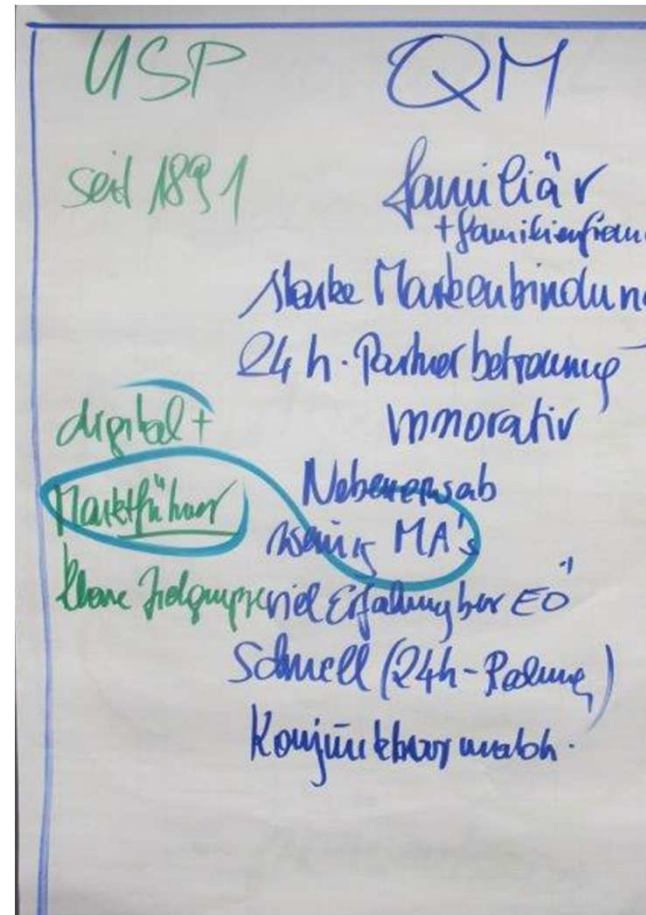 USP QM
seit 1891
familiär
+ familienfreun
starke Markenbindung
24 h. Partnerbetreuung
digital + innovativ
Marktführer
Nebenerwsab
wenig MA's
klare Zielgruppe viel Erfahrung bzr EÖ
Schnell (24h-
Konjunkturunabh.